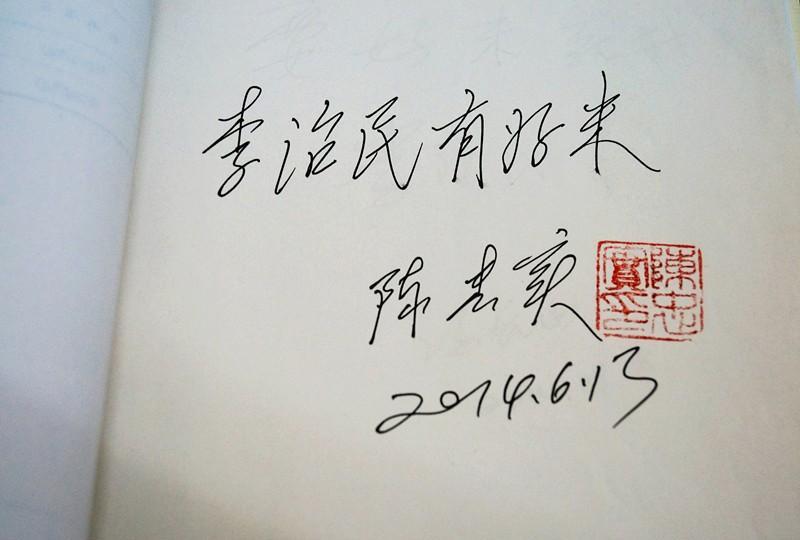 李治民有好米
陈忠实
陳忠實印
2014.6.13